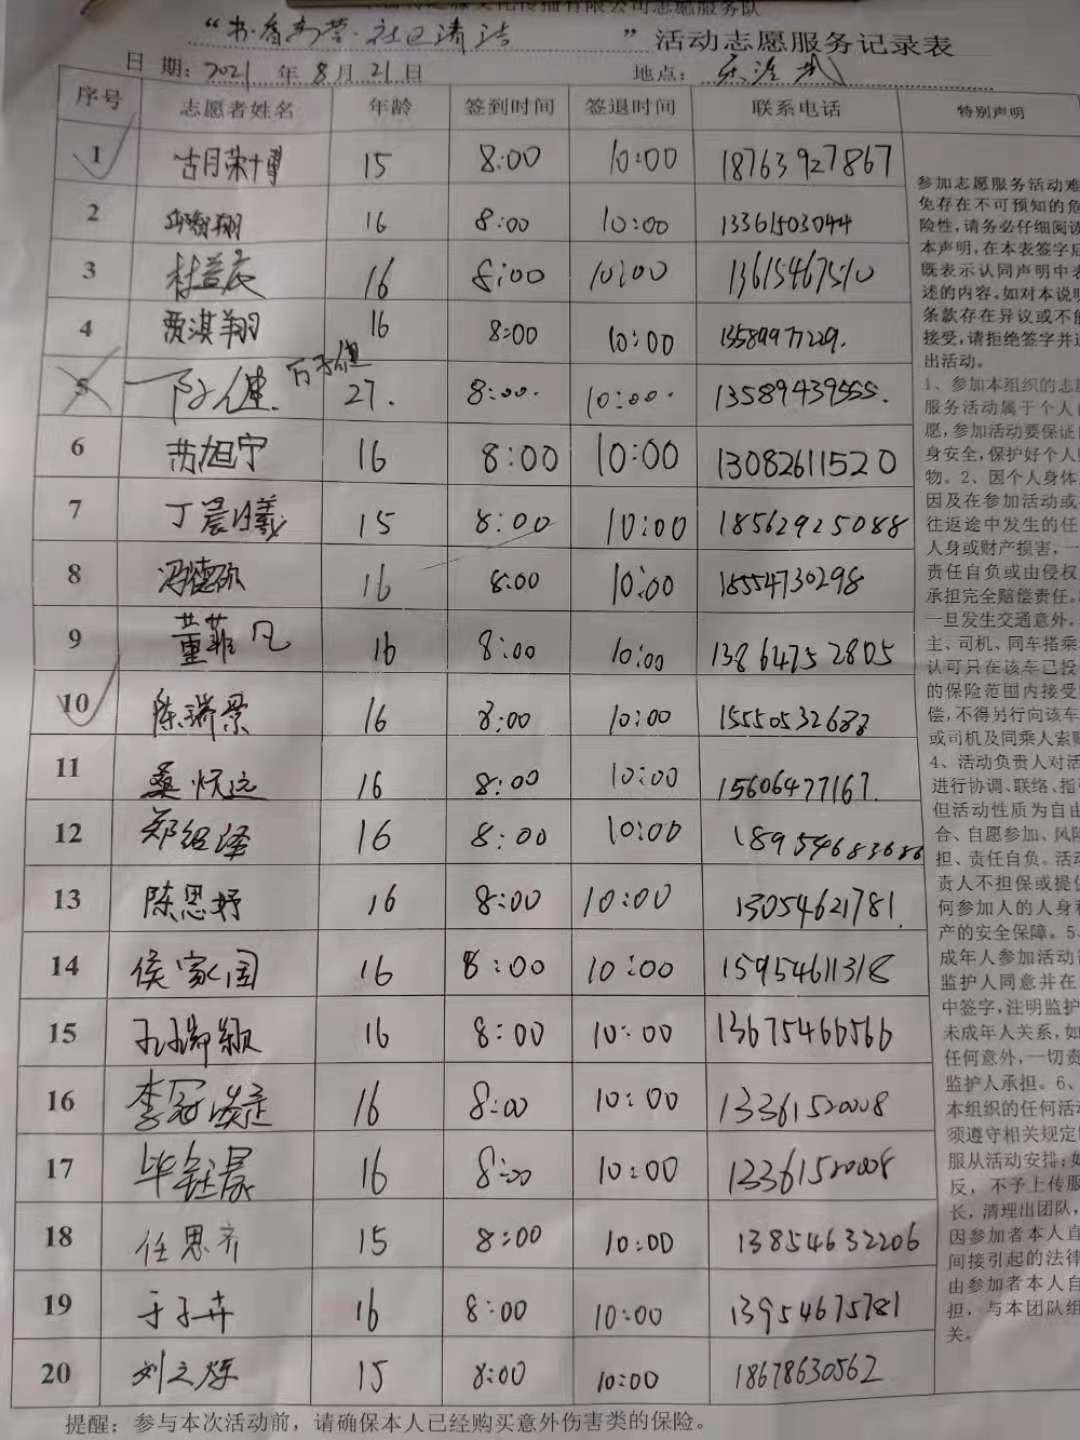 文化传播有限公司志愿服务队
“书香 · 社区清洁 ” 活动志愿服务记录表
日 期: 2021 年 8 月 21 日 地点:
序号 志愿者姓名 年龄 签到时间 签退时间 联系电话 特别声明
1 古月荣博 15 8:00 10:00 18763927867
2 翔 16 8:00 10:00 13361503044
3 杜益辰 16 8:00 10:00 13615467510
4 贾淇翔 16 8:00 10:00 13589977229.
5 27. 8:00. 10:00. 13589439555.
6 苏旭宁 16 8:00 10:00 13082611520
7 丁晨曦 15 8:00 10:00 18562925088
8 冯德硕 16 8:00 10:00 18554730298
9 董菲凡 16 8:00 10:00 13864752805
10 陈瑞景 16 8:00 10:00 15550532688
11 桑怀远 16 8:00 10:00 15606477167.
12 郑绍泽 16 8:00 10:00 18954683686
13 陈思妤 16 8:00 10:00 13054621781
14 侯家国 16 8:00 10:00 15954611318
15 孔瑞颖 16 8:00 10:00 13675466566
16 李冠 16 8:00 10:00 13361520008
17 毕钰晨 16 8:00 10:00 13361520008
18 任思齐 15 8:00 10:00 13854632206
19 于子卉 16 8:00 10:00 13954675781
20 刘之烁 15 8:00 10:00 18678630562
参加志愿服务活动难
免存在不可预知的危
险性,请务必仔细阅读
本声明,在本表签字后
既表示认同声明中表
述的内容。如对本说明
条款存在异议或不能
接受,请拒绝签字并退
出活动。
1、参加本组织的志愿
服务活动属于个人自
愿,参加活动要保证自
身安全,保护好个人财
物。2、因个人身体
因及在参加活动或
往返途中发生的任
人身或财产损害,一
责任自负或由侵权
承担完全赔偿责任。
一旦发生交通意外,
主、司机、同车搭乘
认可只在该车已投
的保险范围内接受
偿,不得另行向该车
或司机及同乘人索赔
4、活动负责人对活
进行协调、联络、指
但活动性质为自由
合、自愿参加、风险
担、责任自负。活动
责人不担保或提供
何参加人的人身和
产的安全保障。5、
成年人参加活动需
监护人同意并在
中签字,注明监护
未成年人关系,如
任何意外,一切责
监护人承担。6、
本组织的任何活动
须遵守相关规定
服从活动安排;如
反,不予上传服
长,清理出团队,
因参加者本人直
间接引起的法律
由参加者本人自
担,与本团队组
关。
提醒:参与本次活动前,请确保本人已经购买意外伤害类的保险。